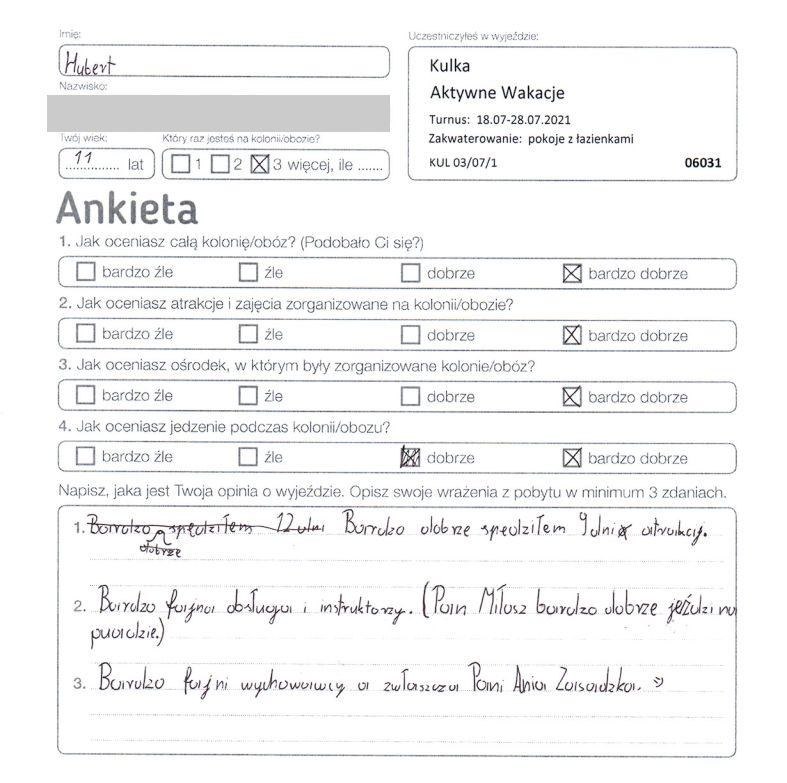 Imię:
Hubert
Nazwisko:
Twój wiek:
11 lat
Który raz jesteś na kolonii/obozie?
1 2 3 więcej, ile .......
Uczestniczyłeś w wyjeździe:
Kulka
Aktywne Wakacje
Turnus: 18.07-28.07.2021
Zakwaterowanie: pokoje z łazienkami
KUL 03/07/1 06031
Ankieta
1. Jak oceniasz całą kolonię/obóz? (Podobało Ci się?)
bardzo źle źle dobrze bardzo dobrze
2. Jak oceniasz atrakcje i zajęcia zorganizowane na kolonii/obozie?
bardzo źle źle dobrze bardzo dobrze
3. Jak oceniasz ośrodek, w którym były zorganizowane kolonie/obóz?
bardzo źle źle dobrze bardzo dobrze
4. Jak oceniasz jedzenie podczas kolonii/obozu?
bardzo źle źle dobrze bardzo dobrze
Napisz, jaka jest Twoja opinia o wyjeździe. Opisz swoje wrażenia z pobytu w minimum 3 zdaniach.
1. Bardzo spędziłem 12 dni Bardzo dobrze spędziłem 9 dni atrakcji.
dobrze
2. Bardzo fajna obsługa i instruktorzy. (Pan Miłosz bardzo dobrze jeździ na
puardzie.)
3. Bardzo fajni wychowawcy a zwłaszcza Pani Ania Zasadzka.